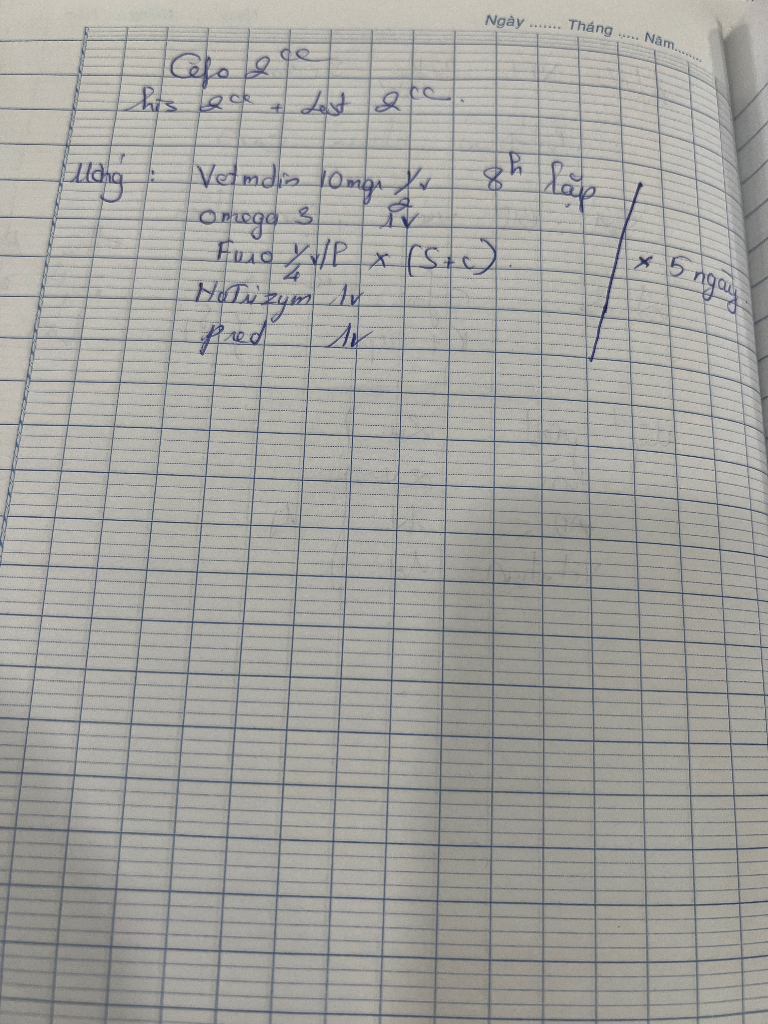 Ngày ....... Tháng ..... Năm........
Cefo 2cc
his 2cc + 2cc.
Uống : Vetmdin 10mgr 1/2v 8h lặp
omega 3 1v
Furo 1/4v/P x (S+C).
Natrizym 1v
pred 1v
x 5 ngày.